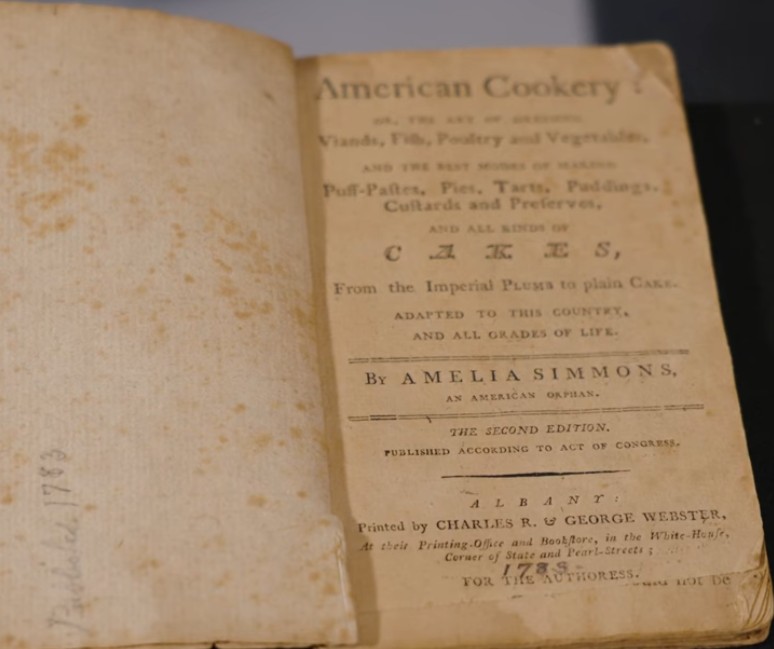 Published 1783
American Cookery:
OR, THE ART OF DRESSING
Viands, Fiſh, Poultry and Vegetables,
AND THE BEST MODES OF MAKING
Puff-Paſtes, Pies, Tarts, Puddings,
Cuſtards and Preſerves,
AND ALL KINDS OF
CAKES,
From the Imperial PLUMB to plain CAKE.
ADAPTED TO THIS COUNTRY,
AND ALL GRADES OF LIFE.
By AMELIA SIMMONS,
AN AMERICAN ORPHAN.
THE SECOND EDITION.
PUBLISHED ACCORDING TO ACT OF CONGRESS.
ALBANY:
Printed by CHARLES R. & GEORGE WEBSTER,
At their Printing-Office and Bookſtore, in the White-Houſe,
Corner of State and Pearl-Streets;
FOR THE AUTHORESS.
not be